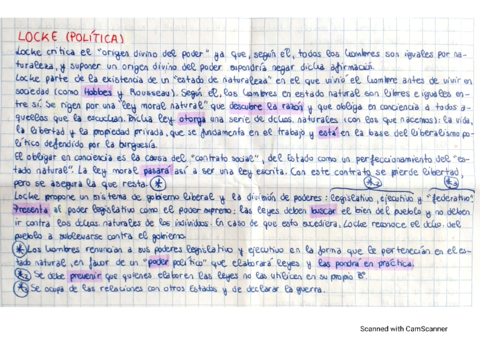 LOCKE (POLÍTICA)
Locke critica el "origen divino del poder" ya que, según él, todos los hombres son iguales por na-
turaleza, y suponer un origen divino del poder supondría negar dicha afirmación.
Locke parte de la existencia de un "estado de naturaleza" en el que vivió el hombre antes de vivir en
sociedad (como Hobbes y Rousseau). Según él, los hombres en estado natural son libres e iguales en-
tre sí. Se rigen por una "ley moral natural" que descubre la razón y que obliga en conciencia a todos a-
quellos que la escuchan. Dicha ley otorga una serie de dchos. naturales (con los que nacemos): la vida,
la libertad y la propiedad privada, que se fundamenta en el trabajo y está en la base del liberalismo po-
lítico defendido por la burguesía.
El obligar en conciencia es la causa del "contrato social", del Estado como un perfeccionamiento del "es-
tado natural". La ley moral pasará así a ser una ley escrita. Con este contrato se pierde libertad,
pero se asegura la que resta.
Locke propone un sistema de gobierno liberal y la división de poderes: legislativo, ejecutivo y "federativo".
Presenta al poder legislativo como el poder supremo: las leyes deben buscar el bien del pueblo y no deben
ir contra los dchos. naturales de los individuos. En caso de que esto sucediera, Locke reconoce el dcho. del
pueblo a sublevarse contra el gobierno.
Los hombres renuncian a sus poderes legislativo y ejecutivo en la forma que le pertenecían en el es-
tado natural, en favor de un "poder político" que elaborará leyes y las pondrá en práctica.
Se debe prevenir que quienes elaboren las leyes no las utilicen en su propio Bº.
Se ocupa de las relaciones con otros Estados y de declarar la guerra.
Scanned with CamScanner